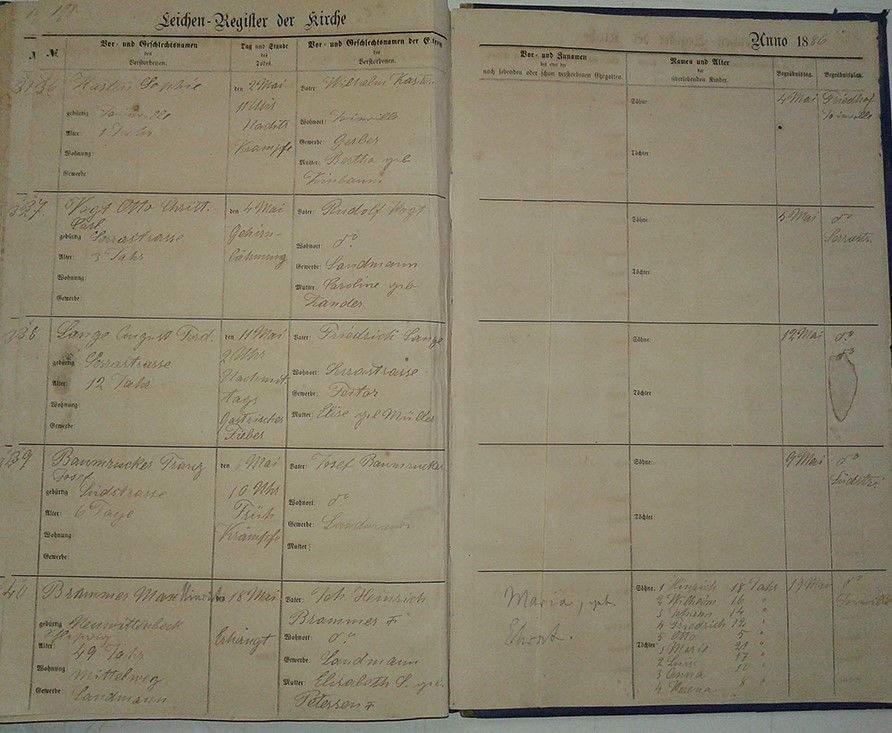 Leichen-Register der Kirche
№
Vor- und Geschlechtsnamen
des
Verstorbenen.
Tag und Stunde
des
Todes.
Vor- und Geschlechtsnamen der Eltern
des
Verstorbenen.
36
Sophie
gebürtig Joinville
Alter: 1 Jahr
Wohnung:
Gewerbe:
den 2 Mai
11 Uhr
Nachts
Krämpfe
Vater: Wilhelm
Wohnort: Joinville
Gewerbe: Gerber
Mutter: Bertha geb
37.
Vogt Otto Christ.
Carl
gebürtig Serrastrasse
Alter: 3 Jahr
Wohnung:
Gewerbe:
den 4 Mai
Gehirn-
Lähmung
Vater: Rudolf Vogt
Wohnort: do
Gewerbe: Landmann
Mutter: Caroline geb
Zander
38
Lange August Ferd.
gebürtig Serrastrasse
Alter: 12 Jahr
Wohnung:
Gewerbe:
den 11 Mai
2 Uhr
Nachmit
tags
Gastrisches
Fieber
Vater: Friedrich Lange
Wohnort: Serrastrasse
Gewerbe:
Mutter: Elise geb Müller
39
Baumrucker Franz
Josef
gebürtig Südstrasse
Alter: 6 Tage
Wohnung:
Gewerbe:
den Mai
10 Uhr
Früh
Krämpfe
Vater: Josef Baumrucker
Wohnort: do
Gewerbe: Landmann
Mutter:
40
Brammer Max Hinrich
gebürtig Neuwittenbeck
Alter: 49 Jahr
Wohnung: Mittelweg
Gewerbe: Landmann
den 18 Mai
Erhängt
Vater: Joh Heinrich
Brammer †
Wohnort: do
Gewerbe: Landmann
Mutter: Elisabeth geb.
Petersen †
Anno 1886
Vor- und Zunamen
des oder der
noch lebenden oder schon verstorbenen Ehegatten.
Namen und Alter
der
überlebenden Kinder.
Begräbnißtag.
Begräbnißplatz.
Söhne:
Töchter:
4 Mai
Friedhof
Joinville
Söhne:
Töchter:
5 Mai
do
Serrastr.
Söhne:
Töchter:
12 Mai
do
do
Söhne:
Töchter:
9 Mai
do
Südstr.
Maria, geb.
Söhne: 1 Hinrich 18 Jahr
2 Wilhelm 16 "
3 Johann 14 "
4 Friedrich 12 "
5 Otto 5 "
Töchter: 1 Maria 21 "
2
3 Anna
4
19 Mai
do
Joinville